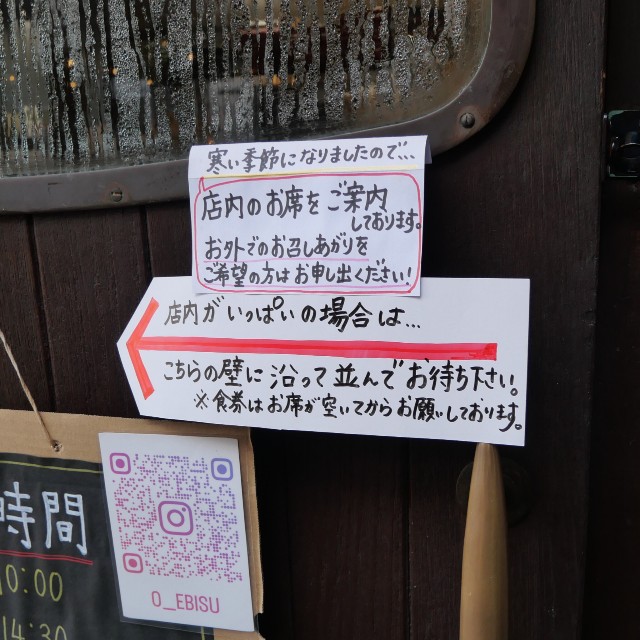 寒い季節になりましたので…
店内のお席をご案内
しております。
お外でのお召しあがりを
ご希望の方はお申し出ください!
店内がいっぱいの場合は…
こちらの壁に沿って並んでお待ち下さい。
※食券はお席が空いてからお願いしております。
時間
10:00
14:30
O_EBISU